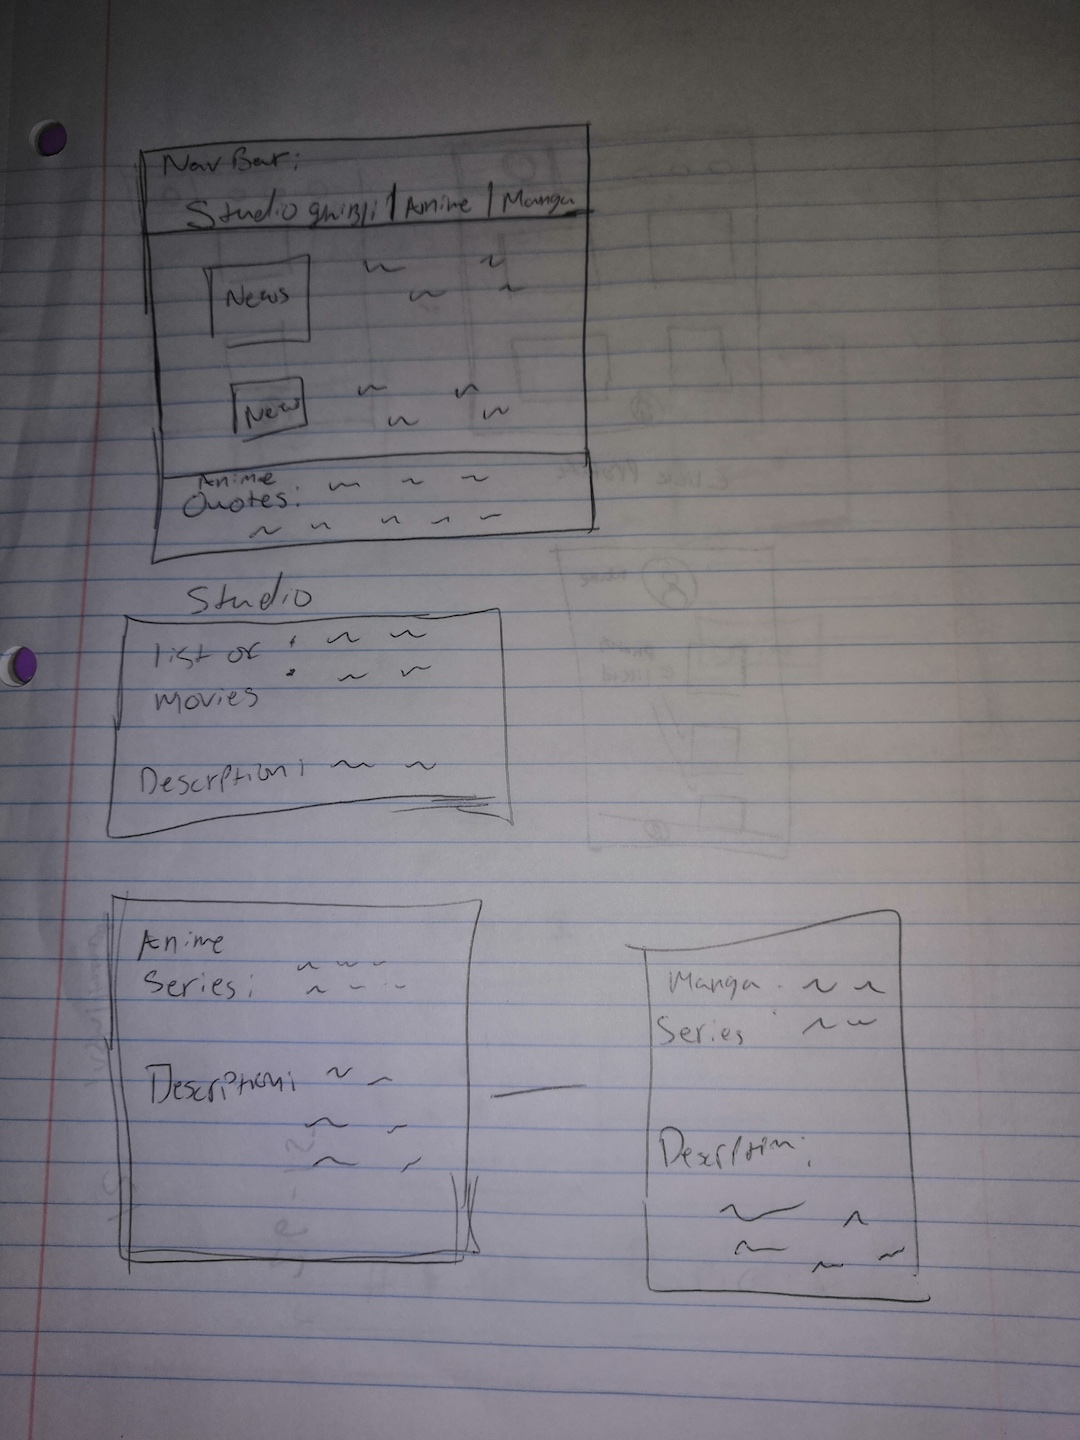 Nav Bar:
Studio ghibli | Anime | Manga
News
News
Anime
Quotes:
Studio
list of :
movies
Descrption:
Anime
Series:
Description:
Manga :
Series
Descrption: